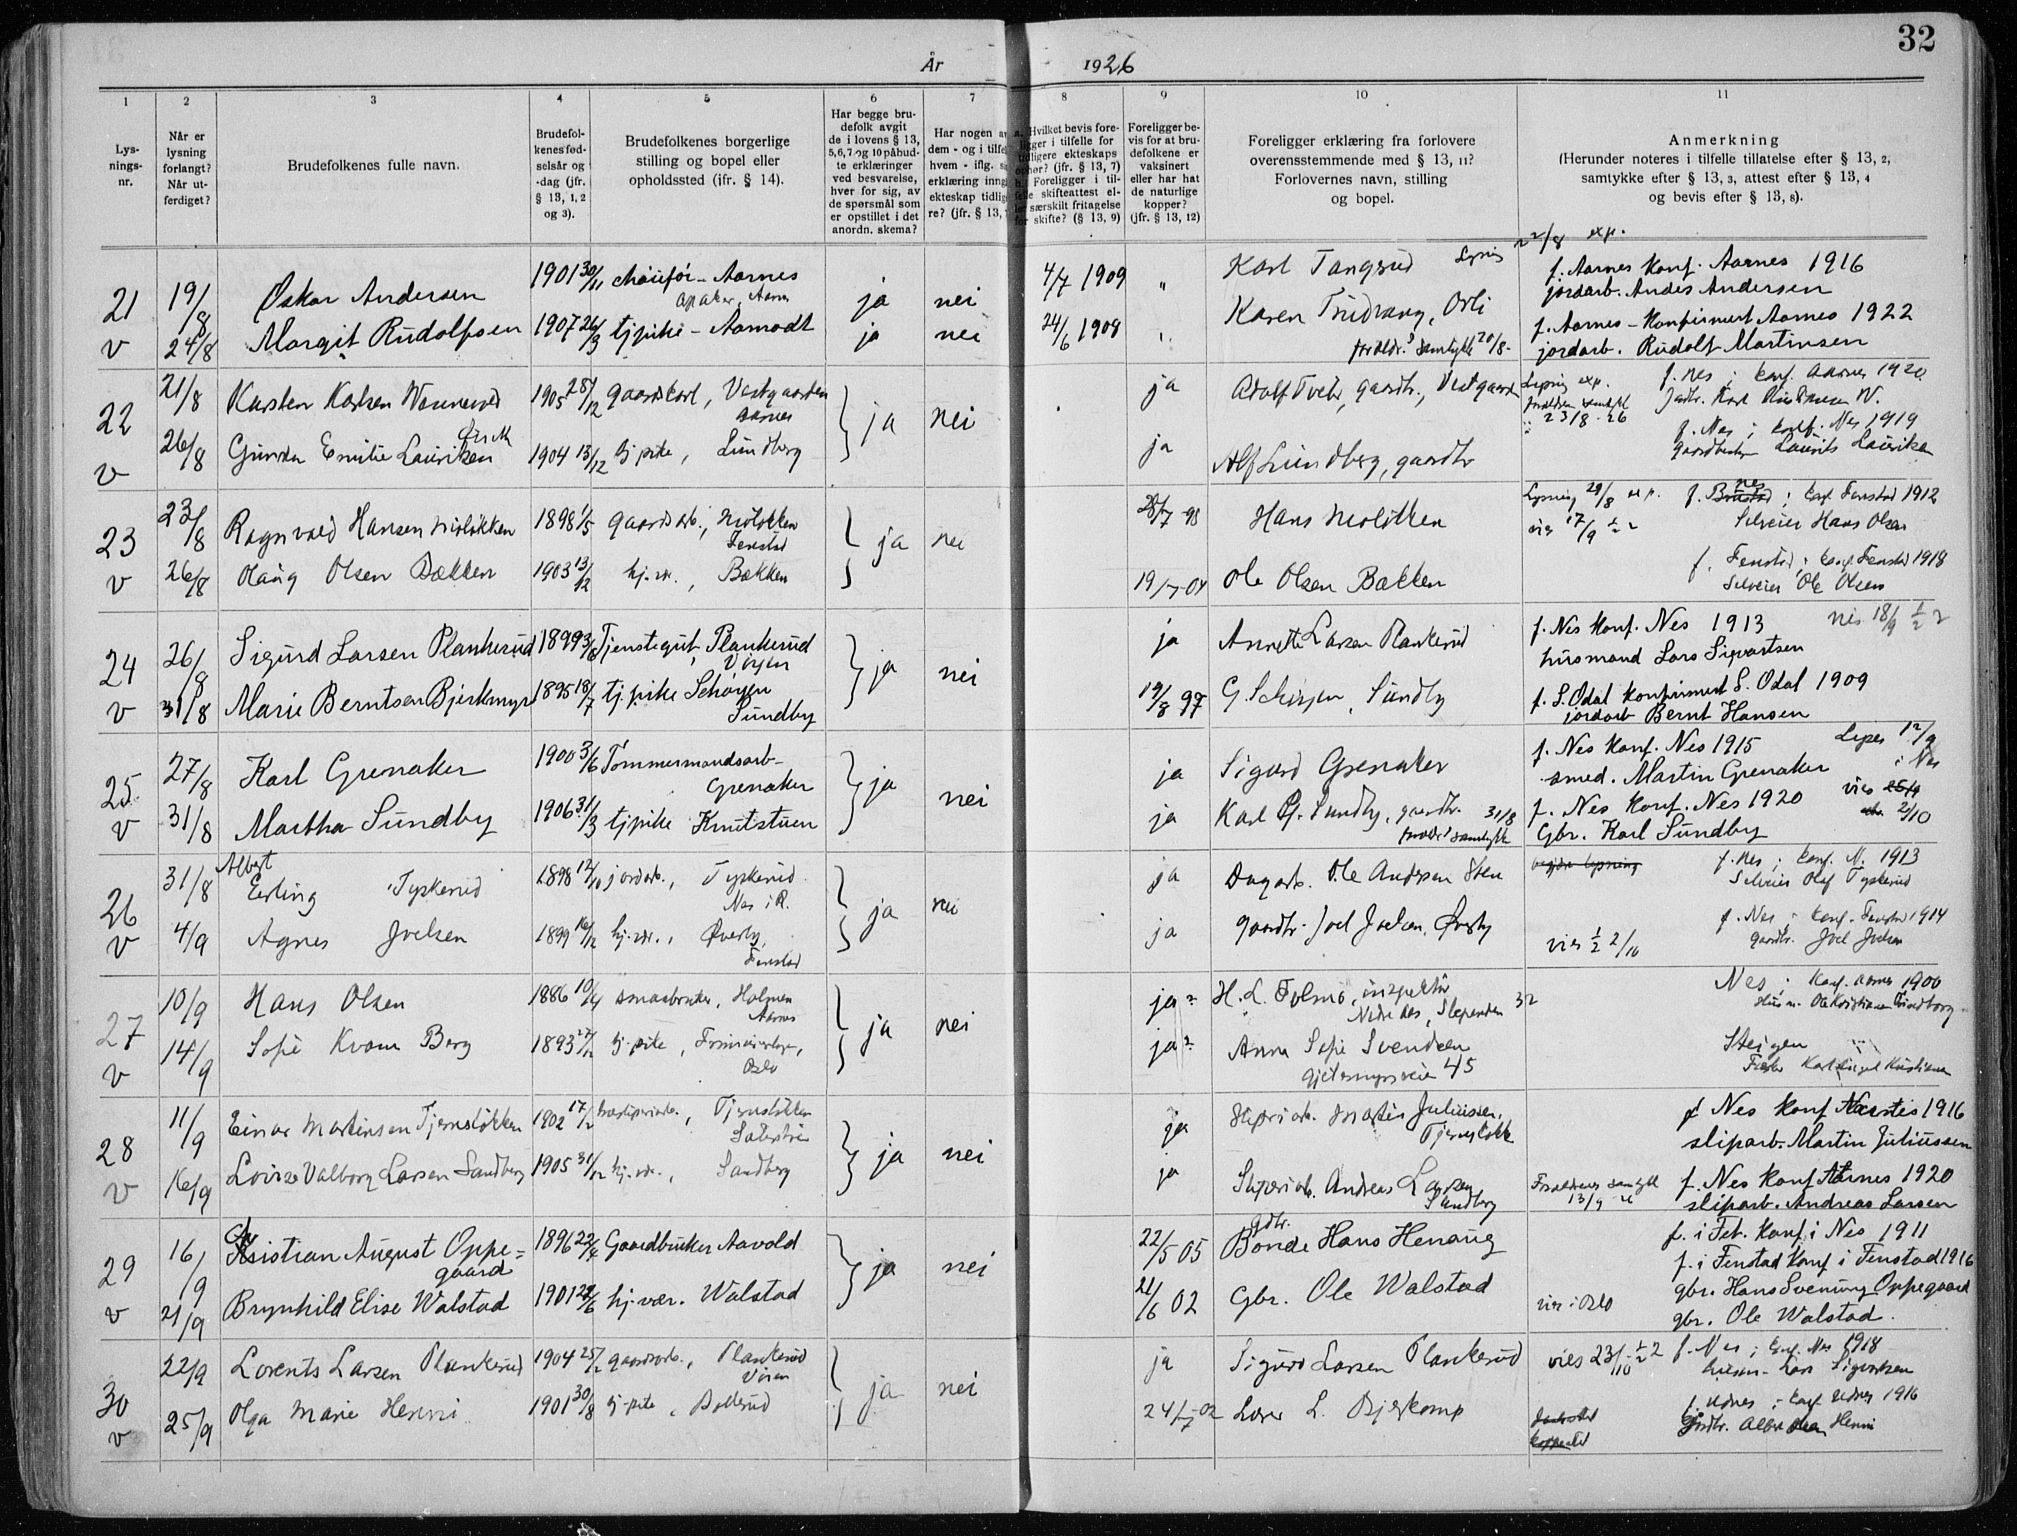 32
År 1926
1 2 3 4 5 6 7 8 9 10 11
Lys-
nings-
nr.
Når er
lysning
forlangt?
Når ut-
ferdiget?
Brudefolkenes fulle navn.
Brudefol-
kenes fød-
selsår og
-dag (jfr.
§ 13, 1, 2
og 3).
Brudefolkenes borgerlige
stilling og bopel eller
opholdssted (ifr. § 14).
Har begge bru-
defolk avgit
de i lovens § 13,
5,6,7 og 10 påbud-
te erklæringer
ved besvarelse,
hver for sig, av
de spørsmål som
er opstillet i det
anordn. skema?
Har nogen av
dem - og i tilfe
hvem - iflg.
erklæring inng
ekteskap tidlig
re? (jfr. § 13,
a. Hvilket bevis fore-
ligger i tilfelle for
tidligere ekteskaps
ophør? (jfr. § 13, 7)
b. Foreligger i til-
felle skifteattest el-
ler særskilt fritagelse
for skifte? (§ 13, 9)
Foreligger be-
vis for at bru-
defolkene er
vaksinert
eller har hat
de naturlige
kopper?
(jfr. § 13, 12)
Foreligger erklæring fra forlovere
overensstemmende med § 13, 11?
Forlovernes navn, stilling
og bopel.
Anmerkning
(Herunder noteres i tilfelle tillatelse efter § 13, 2,
samtykke efter § 13, 3, attest efter § 13, 4
og bevis efter § 13, 8).
Lysning 22/8 exp.
21 19/8 Oskar Andersen 1901 30/11 Chauffør - Aarnes ja nei 4/7 1909 " Karl Tangrud f. Aarnes konf. Aarnes 1916
jordarb. Andes Andersen
v 24/8 Margit Rudolfsen 1907 26/3 tjpike - Aamodt ja nei 24/6 1908 Karen f. Aarnes - Konfirmert Aarnes 1922
samtykke 20/8 - jordarb. Rudolf Martinsen
22 21/8 Karsten Karlsen 1905 28/12 gaardskarl, Vestgaarden ja nei ja Adolf Tveter, gaardbr., Vestgaard Lysning exp. f. Nes ; konf. Aarnes 1920
Aarnes
23/8 - 26
v 26/8 Gunda Emilie Lauritsen 1904 13/12 tj. pike, Lundberg ja Alf Lundberg, gaardbr f. Nes ; konf. Nes 1919
Laurits Lauritsen
23 23/8 Ragnvald Hansen Moløkken 1898 1/5 gaardsarb., Moløkken ja nei 28/7 98 Hans Moløkken Lysning 29/8 exp. f. Nes ; konf. Fenstad 1912
Fenstad vies 17/9 Selveier Hans Olsen
v 26/8 Olaug Olsen Bækken 1903 13/12 hj. vr., Bækken 19/7-04 Ole Olsen Bækken f. Fenstad ; konf. Fenstad 1918
Selveier Ole Olsen
24 26/8 Sigurd Larsen Plankerud 1899 3/6 Tjenstegut, Plankerud ja nei ja Annette Larsen Plankerud f. Nes konf. Nes 1913 vies 18/9 1/2 2
husmand Lars Sigvartsen
v 31/8 Marie Berntsen Bjerkmyr 1895 18/7 tj. pike Schøyen 19/8 97 G. Schøyen, Sundby f. S. Odal konfirmert S. Odal 1909
Sundby jordarb Bernt Hansen
25 27/8 Karl Grenaker 1900 3/6 Tømmermandsarb- ja nei ja Sigurd Grenaker f. Nes konf. Nes 1915 12/9
Grenaker smed. Martin Grenaker i Nes
v 31/8 Martha Sundby 1906 31/3 tjpike Knutstuen ja Karl Sundby, gaardbr. 31/8 f. Nes konf. Nes 1920 vies 2/10
samtykke Gbr. Karl Sundby
26 31/8 Albert
Erling Tyskerud 1898 12/10 jordarb., Tyskerud ja nei ja Dagarb. Ole Andersen Sten f. Nes ; konf. N. 1913
Nes i R. Selveier Olef Tyskerud
v 4/9 Agnes Joelsen 1899 16/12 hj. vr., Øverby, ja gaardbr. Joel Joelsen, Øverby vies 1/2 2/10 f. Nes ; konf. Fenstad 1914
Fenstad gaardbr. Joel Joelsen
27 10/9 Hans Olsen 1886 10/4 smaabruker, Holmen ja nei ja H. L. Folmo, inspektør Nes ; konf. Aarnes 1900
Aarnes Slependen 32
v 14/9 Sofie Kvam Berg 1893 27/12 tj. pike, ja Anna Sofie Svendsen Steigen
Oslo Gjetemyrsveie 45
28 11/9 Einar Martinsen Tjernsløkken 1902 17/2 Tjernsløkken ja nei ja Sliperiarb. Martin Juliussen, f Nes konf Aarnes 1916
sliparb. Martin Juliussen
v 16/9 Lovise Valborg Larsen Sandberg 1905 31/12 hj. vr., Sandberg ja Sliperiarb. Andreas Larsen Forældrenes samtykke f. Nes konf Aarnes 1920
Sandberg 13/9 - 26 sliparb. Andreas Larsen
29 16/9 Christian August Oppe= 1896 22/4 Gaardbruker Aavold ja nei 22/5 05 Gdbr.
gaard Bonde Hans Henaug f. i Fet. konf. i Nes 1911
f. i Fenstad konf i Fenstad 1916
v 21/9 Brynhild Elise Walstad 1901 28/6 hj. vær. Walstad 21/6 02 Gbr. Ole Walstad vies i Oslo gbr. Hans Svenung Oppegaard
gbr. Ole Walstad.
30 22/9 Lorents Larsen Plankerud 1904 25/12 gaardsarb., Plankerud ja nei ja Sigurd Larsen Plankerud vies 23/10 1/2 2 f. Nes ; konf. Nes 1918
Lars Sigvartsen
v 25/9 Olga Marie Henni 1901 30/8 tj. pike, Bollerud 24/7-02 f. Udnes ; konf Udnes 1916
gaardbr. Henni